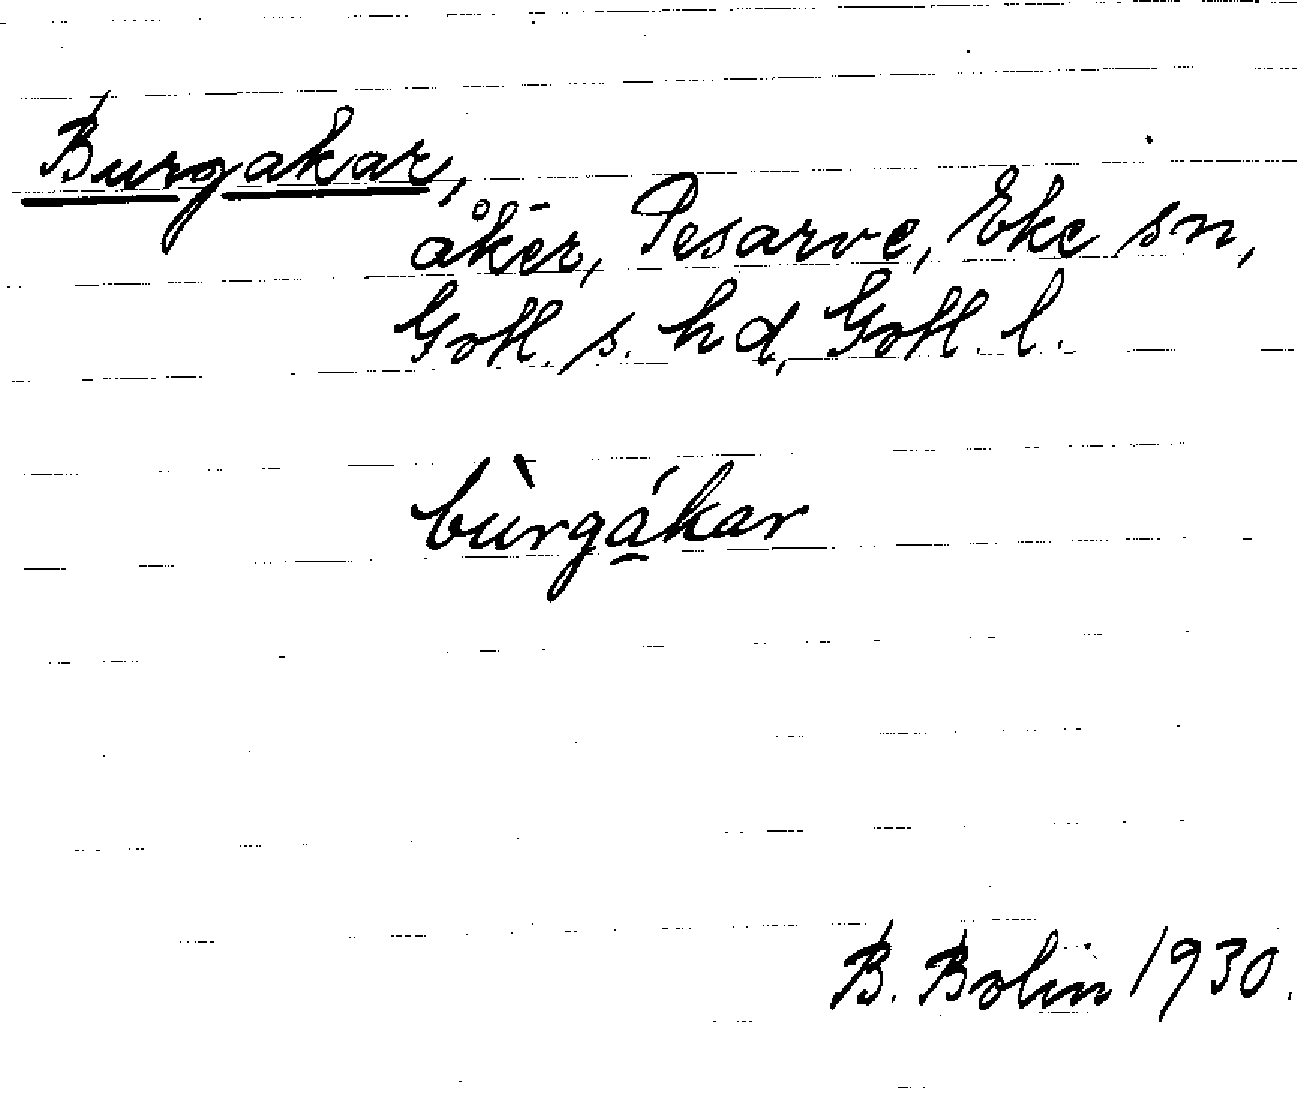 Burgakar,
åker, Pesarve, Eke sn,
Gotl. s. hd, Gotl. l.
bùrgá̱kar
B. Bolin 1930.